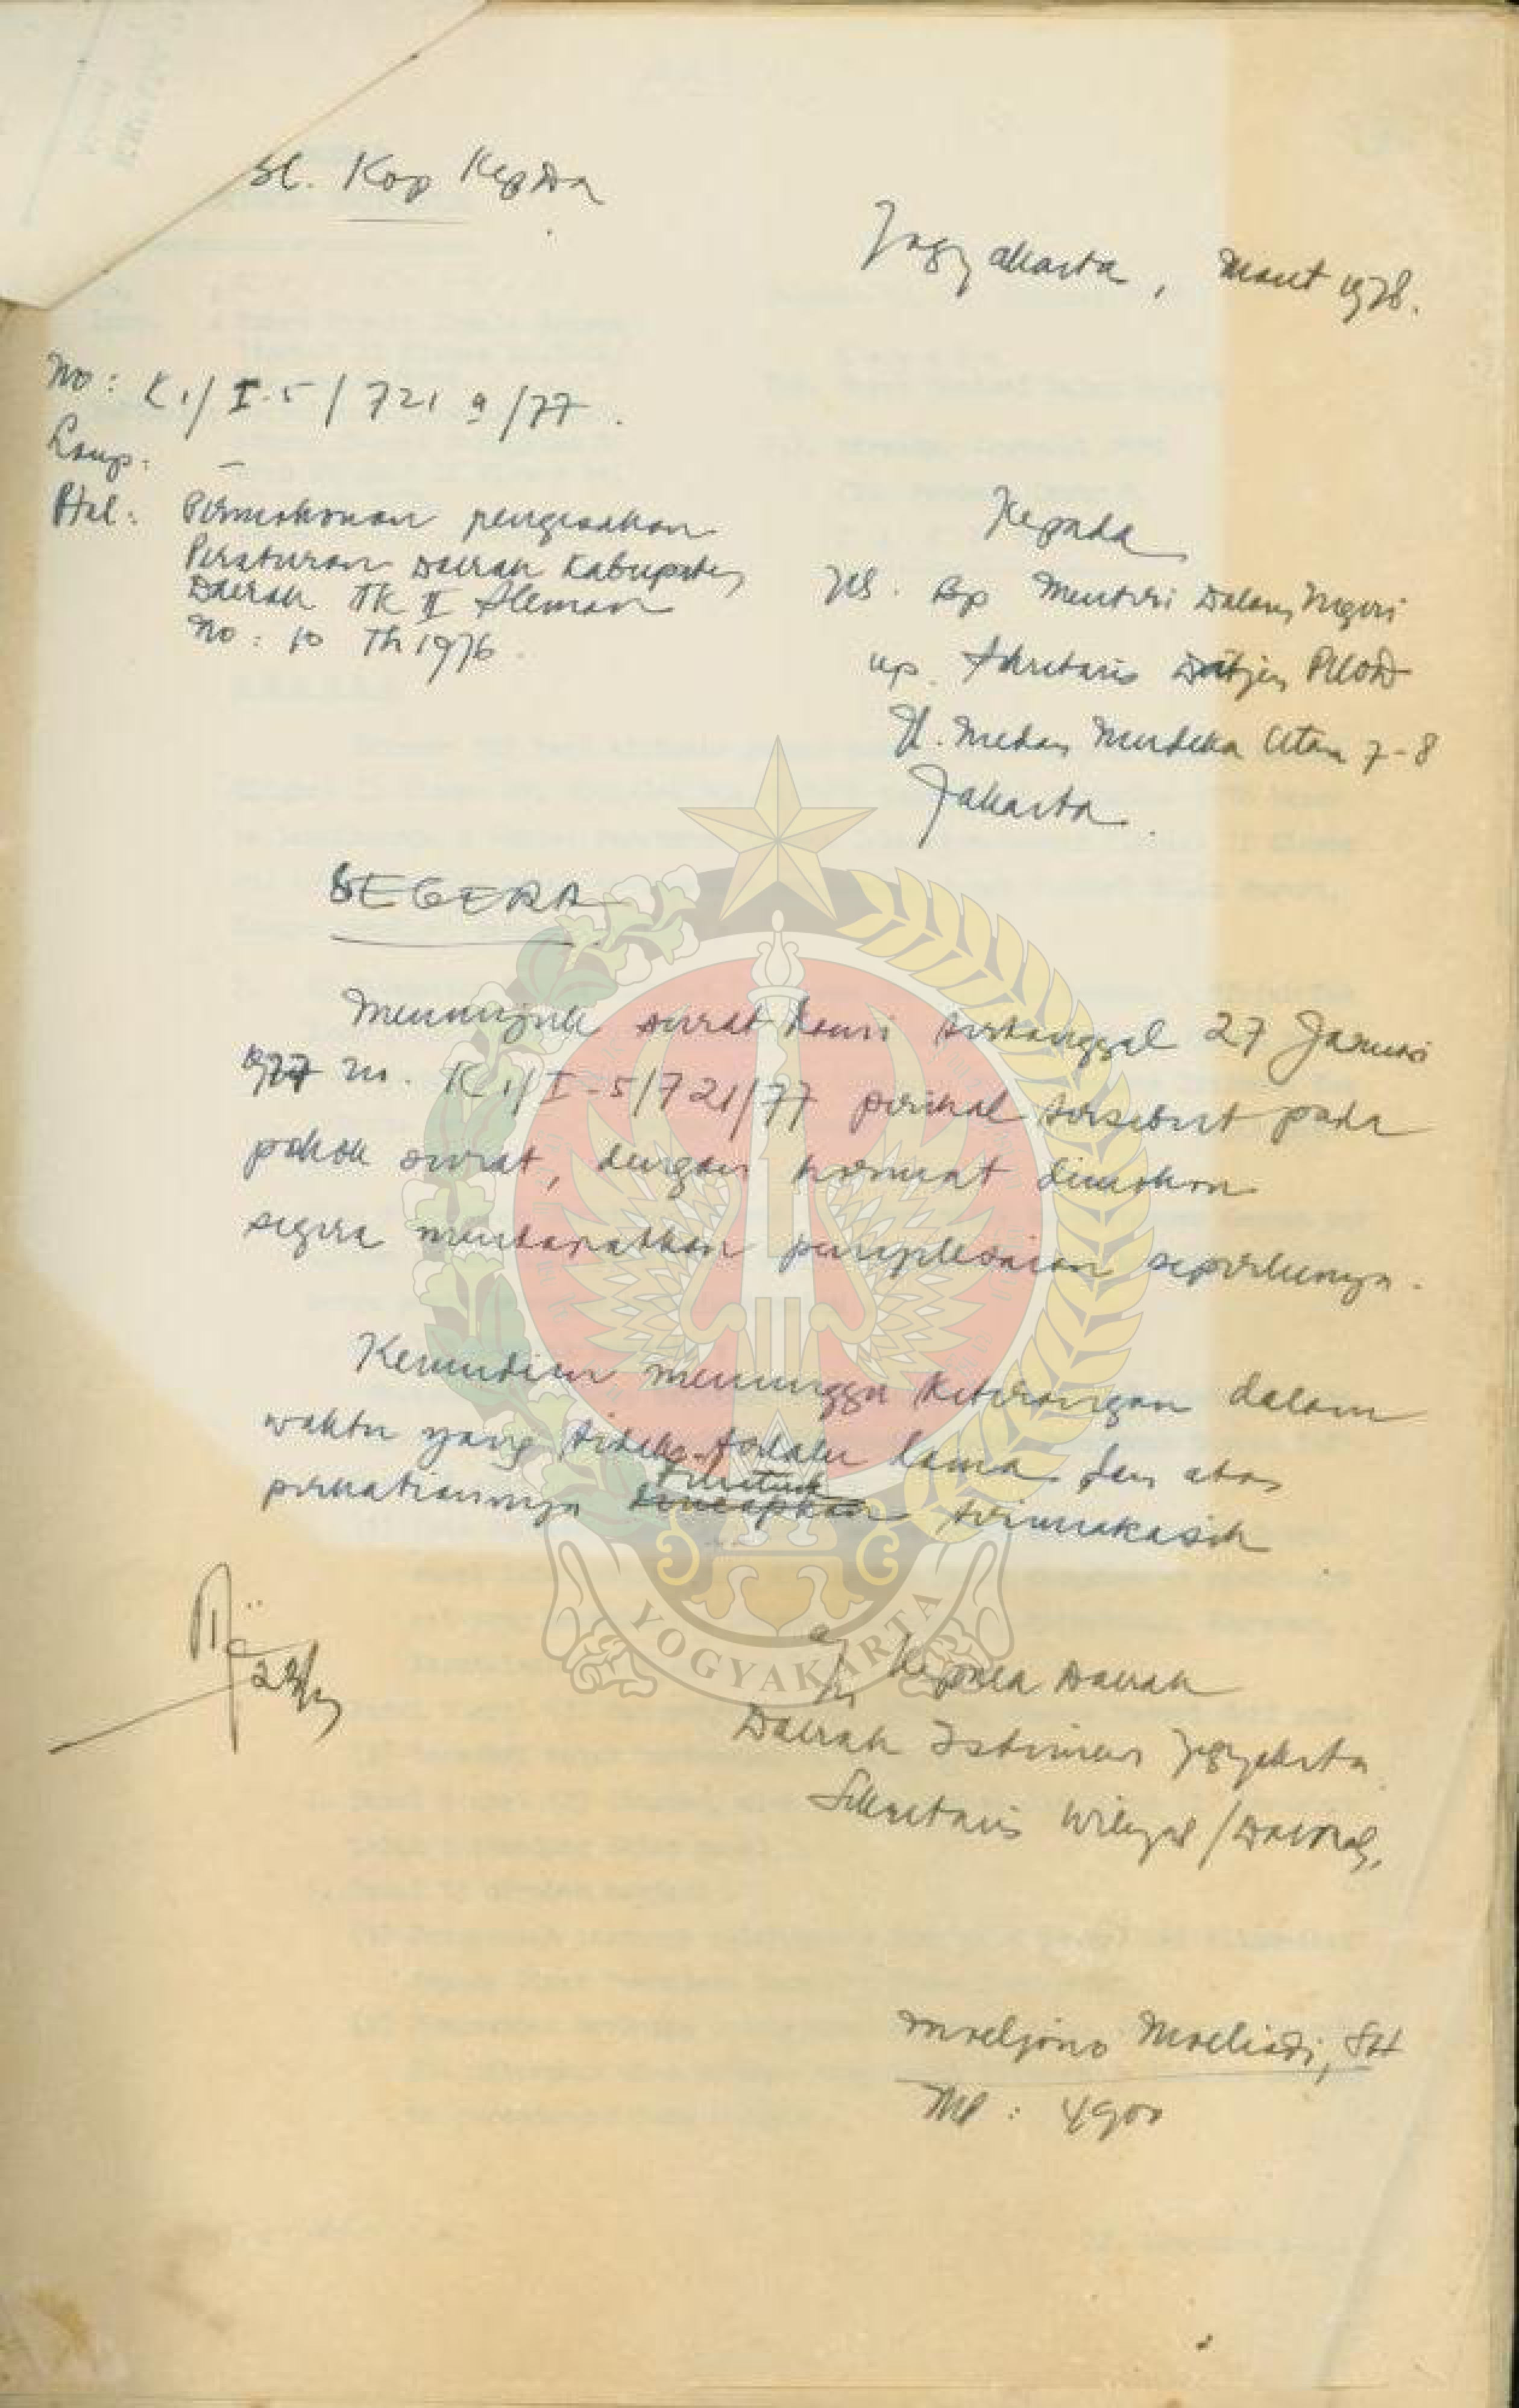 Kop Kepda
Jogyakarta, Maret 1978.
No: K1/I-5/721 a/77.
Lamp: -
Hal: Permohonan pengesahan
Peraturan Daerah Kabupaten
Daerah TK II Sleman
No: 10 Th 1976.
Kepada
Yth. Bp Menteri Dalam Negeri
up. Sekretaris Ditjen PUOD
Jl. Medan Merdeka Utara 7-8
Jakarta.
SEGERA
Menunjuk surat kami tertanggal 27 Januari
1977 no. K1/I-5/721/77 perihal tersebut pada
pokok surat, dengan hormat dimohon
segera mendapatkan penyelesaian seperlunya.
Kemudian menunggu keterangan dalam
waktu yang tidak terlalu lama dan atas
perhatiannya diucapkan terimakasih
Kepala Daerah
Daerah Istimewa Jogyakarta
Sekretaris Wilayah/Daerah,
Moeljono Moeliadi, SH
YOGYAKARTA